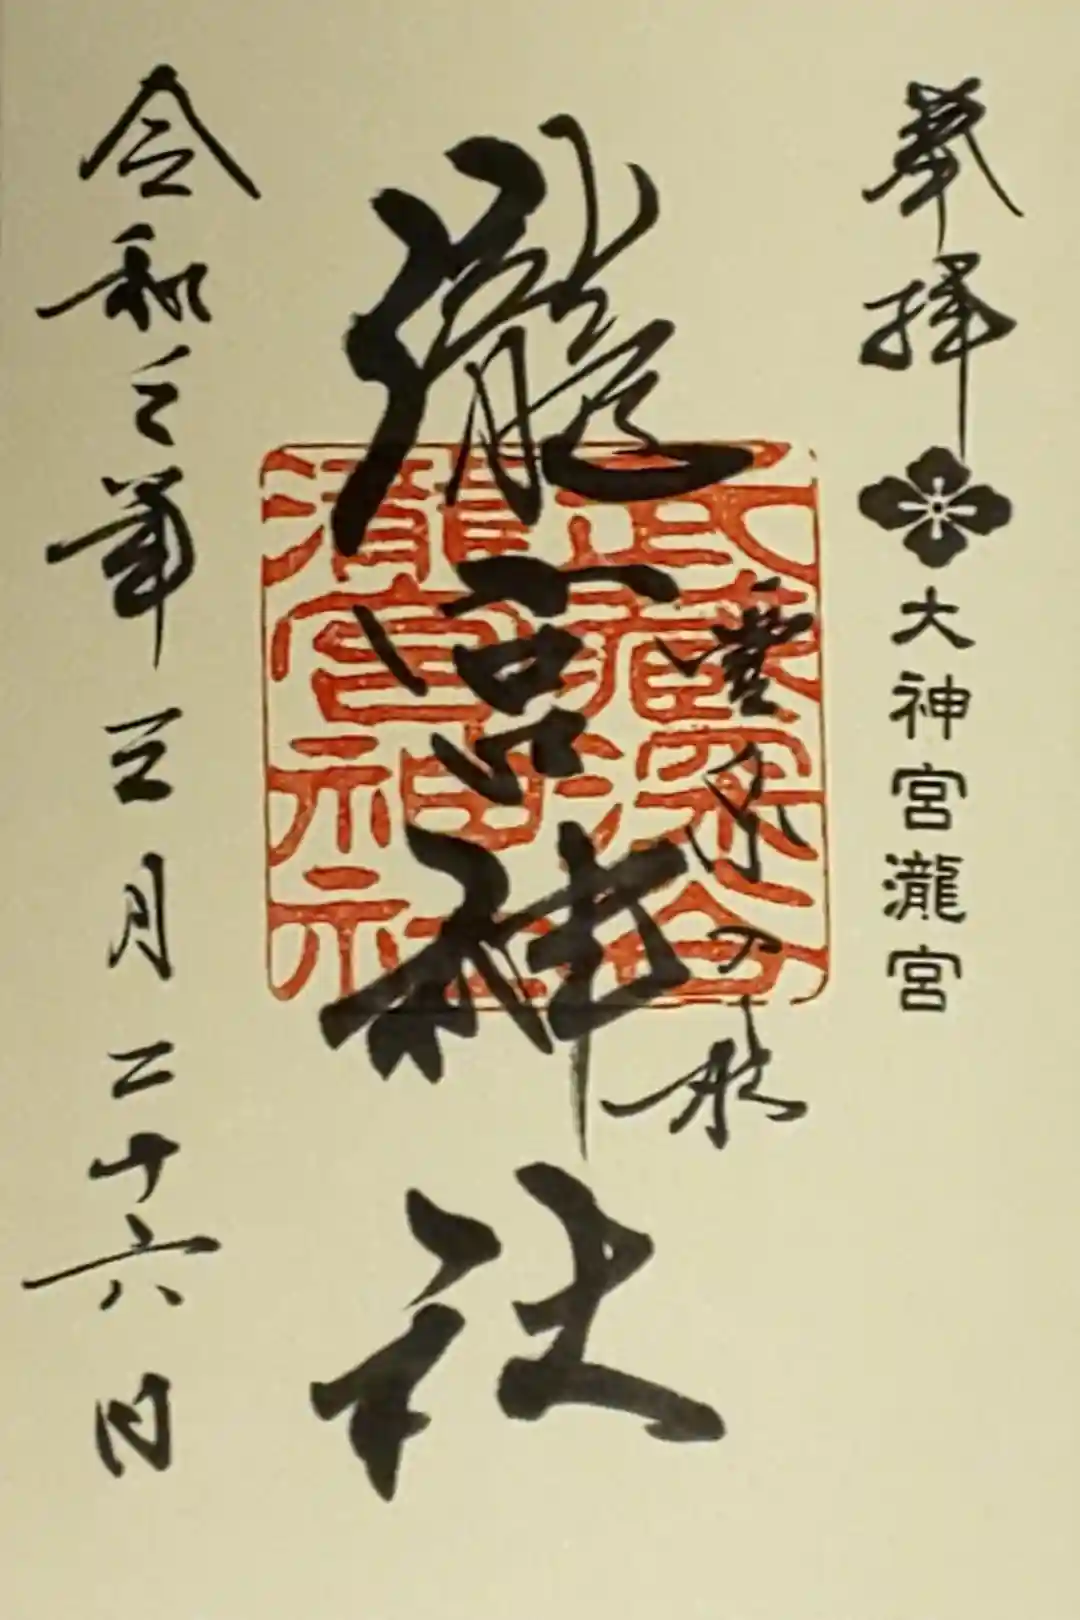 奉拝
大神宮瀧宮
瀧宮神社
武藏深谷
瀧宮神社
令和三年三月二十六日